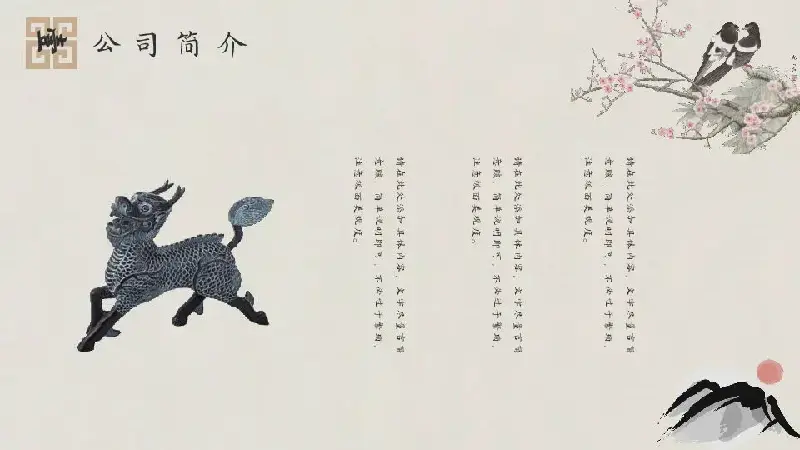 壹
公司简介
请在此处添加具体内容，文字尽量言简
意赅，简单说明即可，不必过于繁琐，
注意版面美观度。
请在此处添加具体内容，文字尽量言简
意赅，简单说明即可，不必过于繁琐，
注意版面美观度。
请在此处添加具体内容，文字尽量言简
意赅，简单说明即可，不必过于繁琐，
注意版面美观度。